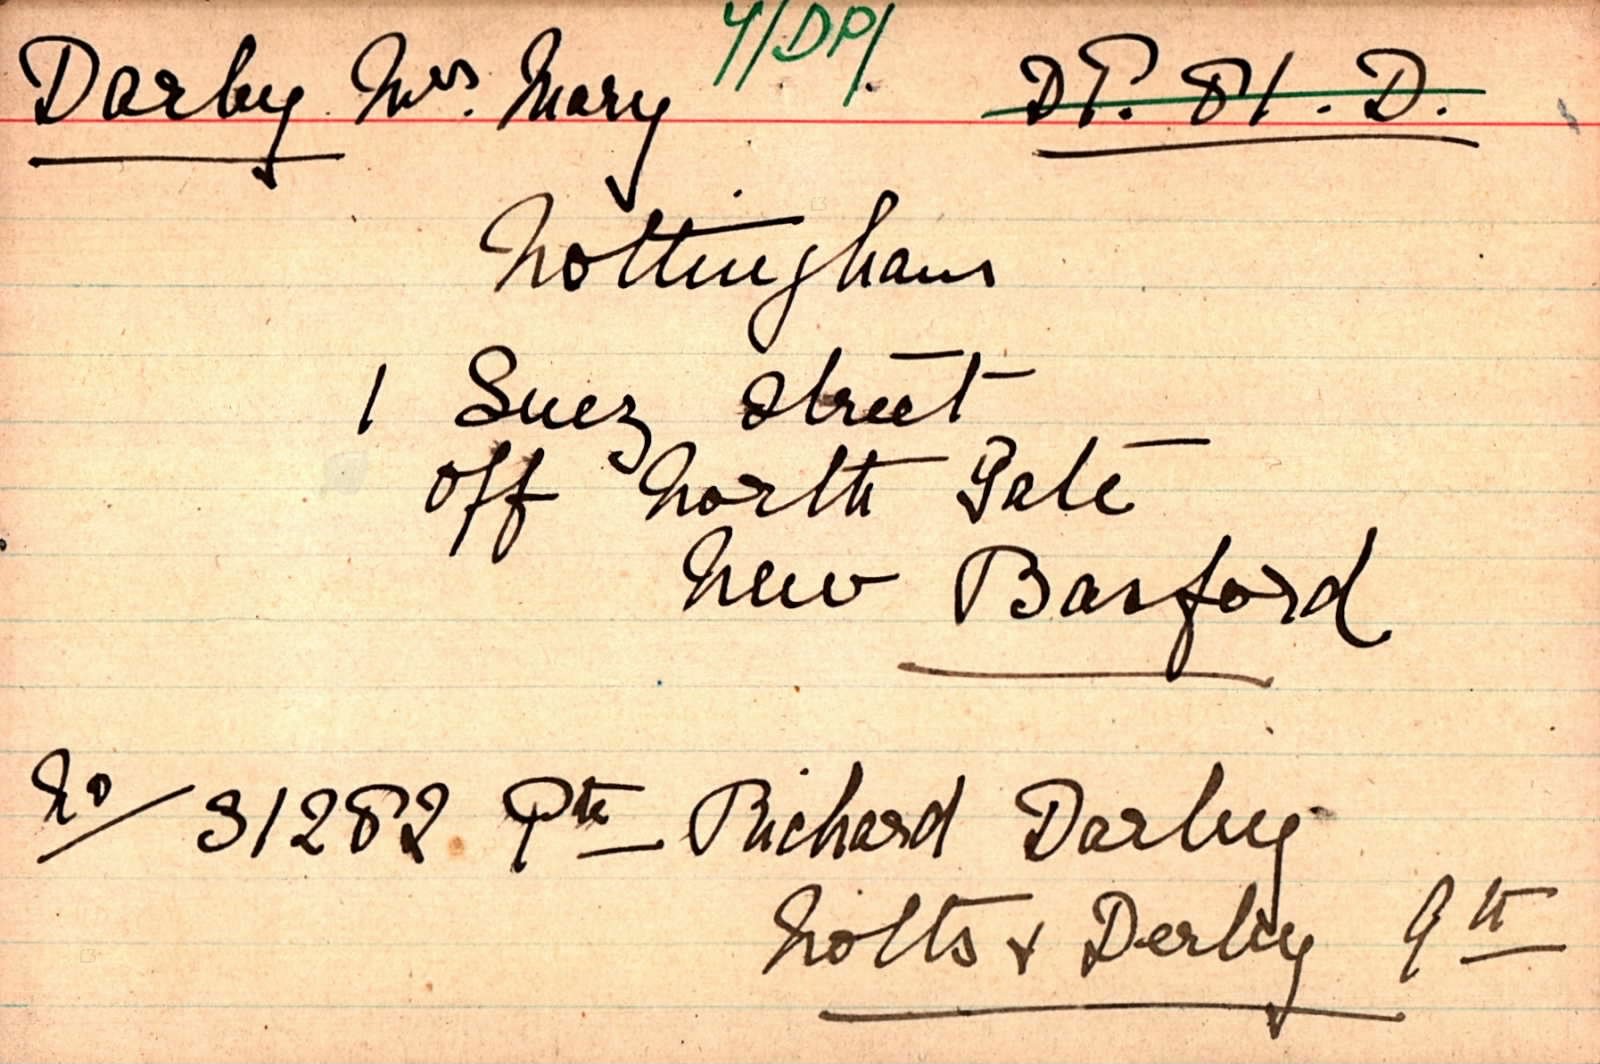 Y/DP/
Darby Mrs. Mary DP. 81. D.
Nottingham
1 Suez Street
off North Gate
New Basford
No/ 31282 Pte Richard Darby
Notts & Derby 9th